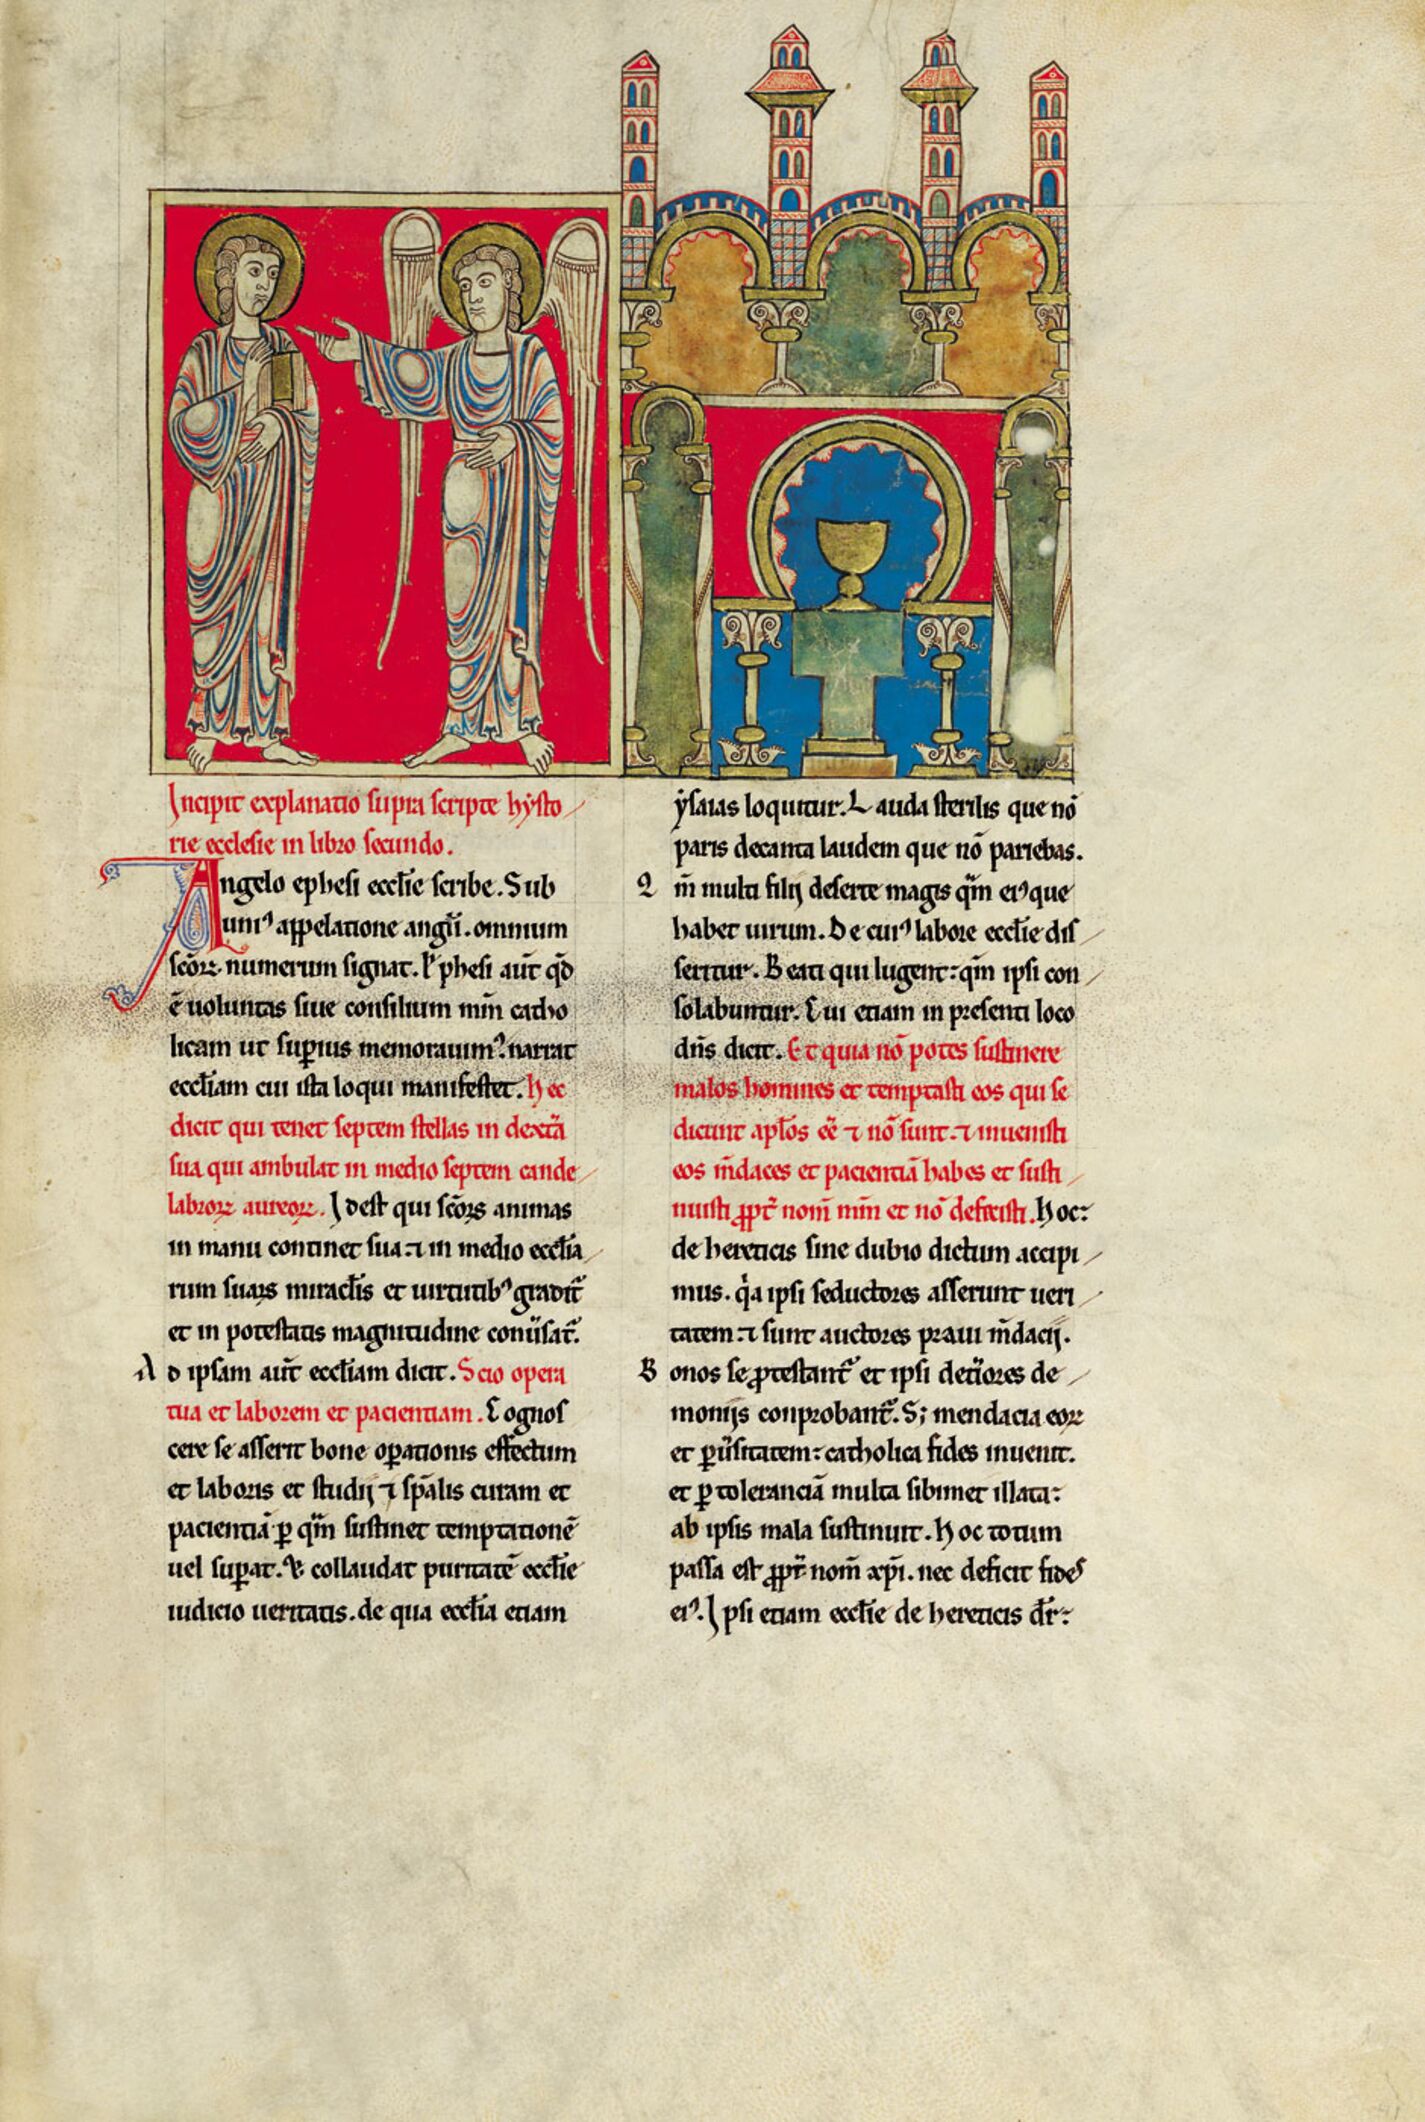 Incipit explanatio supra scripte hysto
rie ecclesie in libro secundo.
Angelo ephesi eccl̄ie scribe. Sub
uniꝰ appelatione angl̄i. omnium
sc̄oꝝ numerum signat. Ephesi aut̄ qd̄
ē uoluntas siue consilium mm̄ catho
licam ut suꝑius memorauimꝰ. narrat
eccl̄iam cui ista loqui manifestet. hec
dicit qui tenet septem stellas in dext̄a
sua qui ambulat in medio septem cande
labroꝝ aureoꝝ. Idest qui sc̄oꝝ animas
in manu continet sua. ⁊ in medio eccl̄ia
rum suaꝝ miracl̄is et uirtutibꝰ gradit᷑
et in potestatis magnitudine conūsat᷑.
Ad ipsam aut̄ eccl̄iam dicit. Scio opera
tua et laborem et pacientiam. Cognos
cere se asserit bone oꝑationis effectum
et laboris et studij ⁊ sp̄alis curam et
pacientiā ꝑ qm̄ sustinet temptationē
uel suꝑat. Et collaudat puritatē eccl̄ie
iudicio ueritatis. de qua eccl̄ia etiam
ẏsaias loquitur. Lauda sterilis que nō
paris decanta laudem que nō pariebas.
Qm̄ multi filij deserte magis qm̄ eiꝰ que
habet uirum. De cuiꝰ labore eccl̄ie dis
seritur. Beati qui lugent: qm̄ ipsi con
solabuntur. Cui etiam in presenti loco
dn̄s dicit. Et quia nō potes sustinere
malos homines et temptasti eos qui se
dicunt apl̄os eē ⁊ nō sunt. ⁊ inuenisti
eos m̄daces et pacientiā habes et susti
nuisti ꝓpt̄ nom̄ mm̄ et nō defecisti. hoc:
de hereticis sine dubio dictum accipi
mus. qa ipsi seductores asserunt ueri
tatem: ⁊ sunt auctores praui m̄dacij.
Bonos se ꝓtestant᷑ et ipsi det̄iores de
monijs conprobant᷑. S; mendacia eoꝝ
et ꝑūsitatem: catholica fides inuenit.
et ꝑ toleranciā multa sibimet illata:
ab ipsis mala sustinuit. hoc totum
passa est ꝓpt̄ nom̄ xp̄i. nec deficit fides
eiꝰ. Ipsi etiam eccl̄ie de hereticis dr̄: